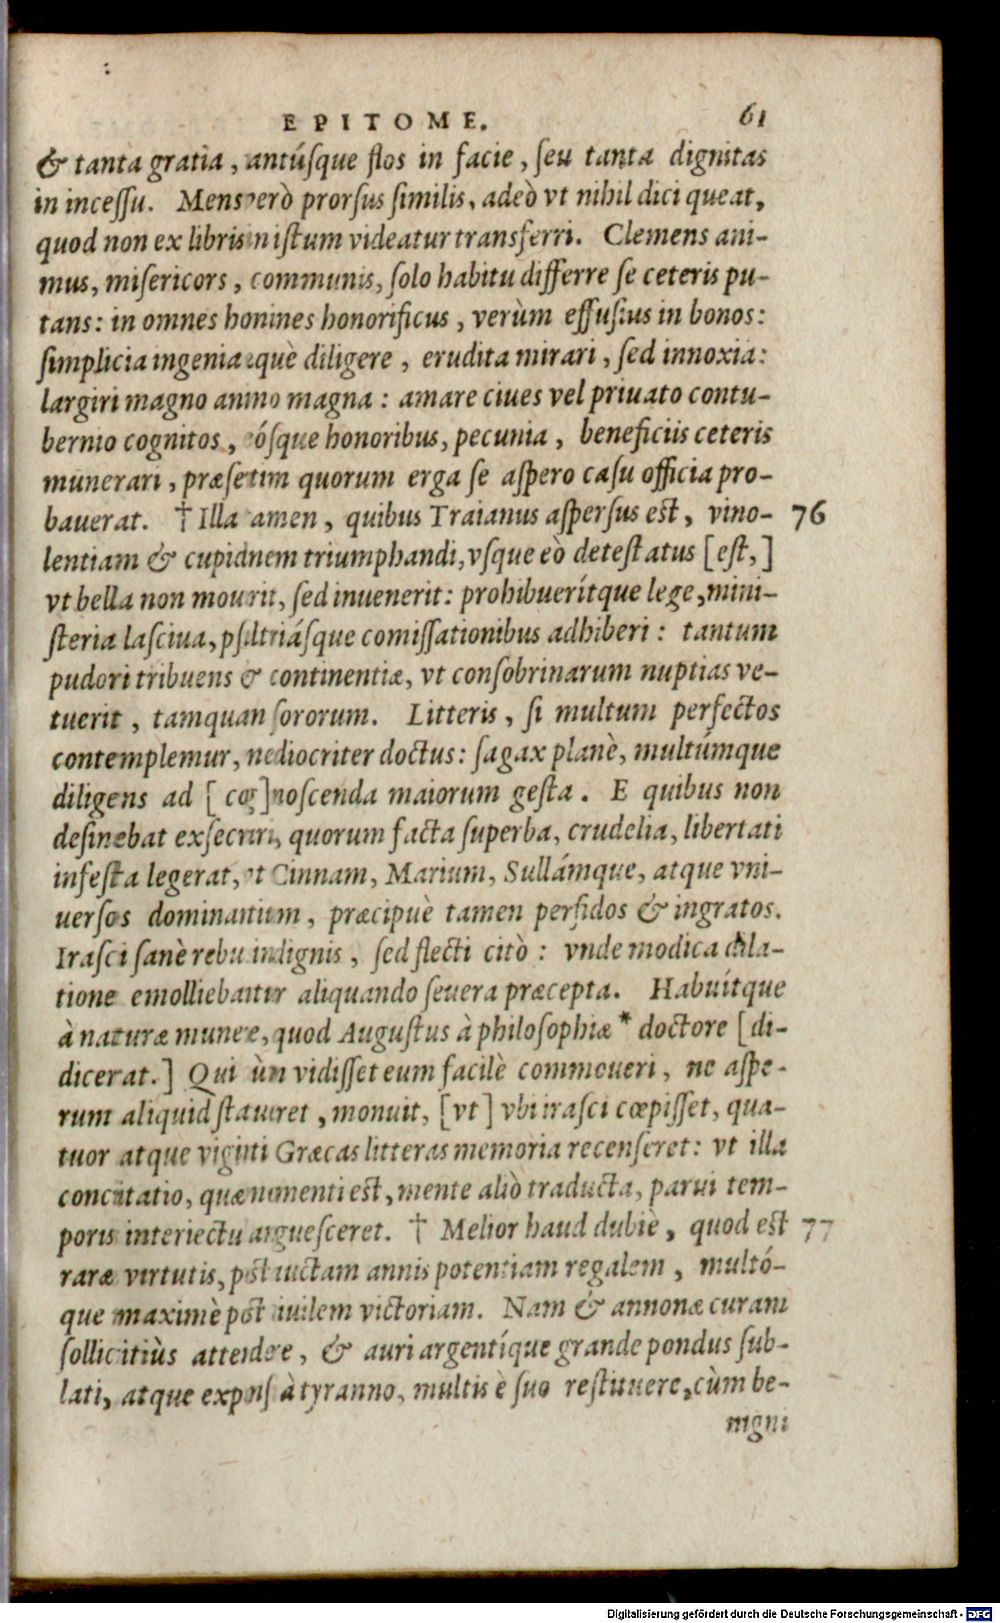 EPITOME. 61
& tanta gratia, antúsque flos in facie, seu tanta dignitas
in incessu. Mens verò prorsus similis, adeò vt nihil dici queat,
quod non ex libris in istum videatur transferri. Clemens ani-
mus, misericors, communis, solo habitu differre se ceteris pu-
tans: in omnes homines honorificus, verùm effusius in bonos:
simplicia ingenia æquè diligere, erudita mirari, sed innoxia:
largiri magno animo magna: amare ciues vel priuato contu-
bernio cognitos, eósque honoribus, pecunia, beneficiis ceteris
munerari, præsertim quorum erga se aspero casu officia pro-
bauerat. † Illa tamen, quibus Traianus aspersus est, vino- 76
lentiam & cupidinem triumphandi, vsque eò detestatus [est,]
vt bella non mouerit, sed inuenerit: prohibuerítque lege, mini-
steria lasciua, psaltriásque comissationibus adhiberi: tantum
pudori tribuens & continentiæ, vt consobrinarum nuptias ve-
tuerit, tamquam sororum. Litteris, si multum perfectos
contemplemur, mediocriter doctus: sagax planè, multúmque
diligens ad [cog]noscenda maiorum gesta. E quibus non
desinebat exsecrari, quorum facta superba, crudelia, libertati
infesta legerat, vt Cinnam, Marium, Sullámque, atque vni-
uersos dominantium, præcipuè tamen perfidos & ingratos.
Irasci sanè rebus indignis, sed flecti citò: vnde modica dila-
tione emolliebantur aliquando seuera præcepta. Habuítque
à naturæ munere, quod Augustus à philosophiæ * doctore [di-
dicerat.] Qui cùm vidisset eum facilè commoueri, ne aspe-
rum aliquid statueret, monuit, [vt] vbi irasci cœpisset, qua-
tuor atque viginti Græcas litteras memoria recenseret: vt illa
concitatio, quæ momenti est, mente aliò traducta, parui tem-
poris interiectu languesceret. † Melior haud dubiè, quod est 77
raræ virtutis, post auctam annis potentiam regalem, multó-
que maximè post ciuilem victoriam. Nam & annonæ curam
sollicitiùs attendere, & auri argentíque grande pondus sub-
lati, atque expensi à tyranno, multis è suo restituere, cùm be-
nigni
Digitalisierung gefördert durch die Deutsche Forschungsgemeinschaft - DFG